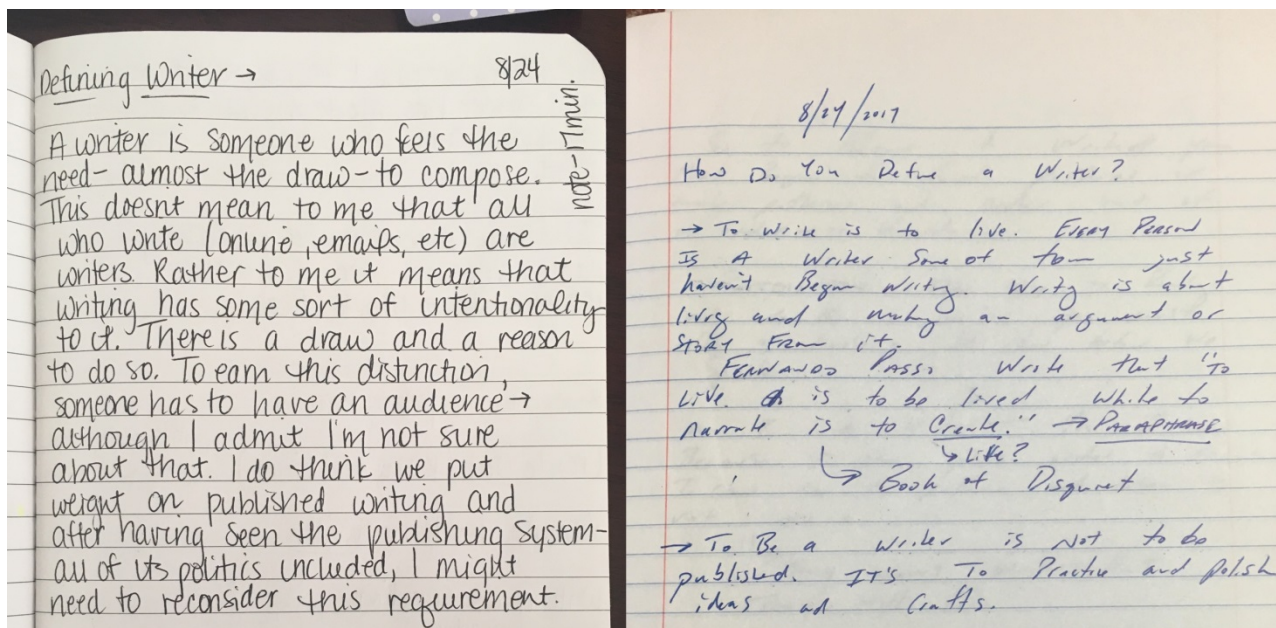 Defining Writer → 8/24
note-17min.
A writer is someone who feels the
need- almost the draw-to compose.
This doesnt mean to me that all
who write (online, emails, etc) are
writers. Rather to me it means that
writing has some sort of intentionality
to it. There is a draw and a reason
to do so. To earn this distinction,
someone has to have an audience →
although I admit I'm not sure
about that. I do think we put
weight on published writing and
after having seen the publishing system-
all of its politics included, I might
need to reconsider this requirement.
8/24/2017
How Do You Define a Writer?
→ To Write is to live. Every Person
Is A Writer Some of them just
haven't Began Writing. Writing is about
living and making an argument or
STORY From it.
FERNANDO PASSO Write that "To
Live is to be lived while to
narrate is to Create." → PARAPHRASE
↳ Life?
↳ Book of Disquiet
→ To Be a writer is Not to be
published. IT'S To Practice and polish
ideas and Crafts.